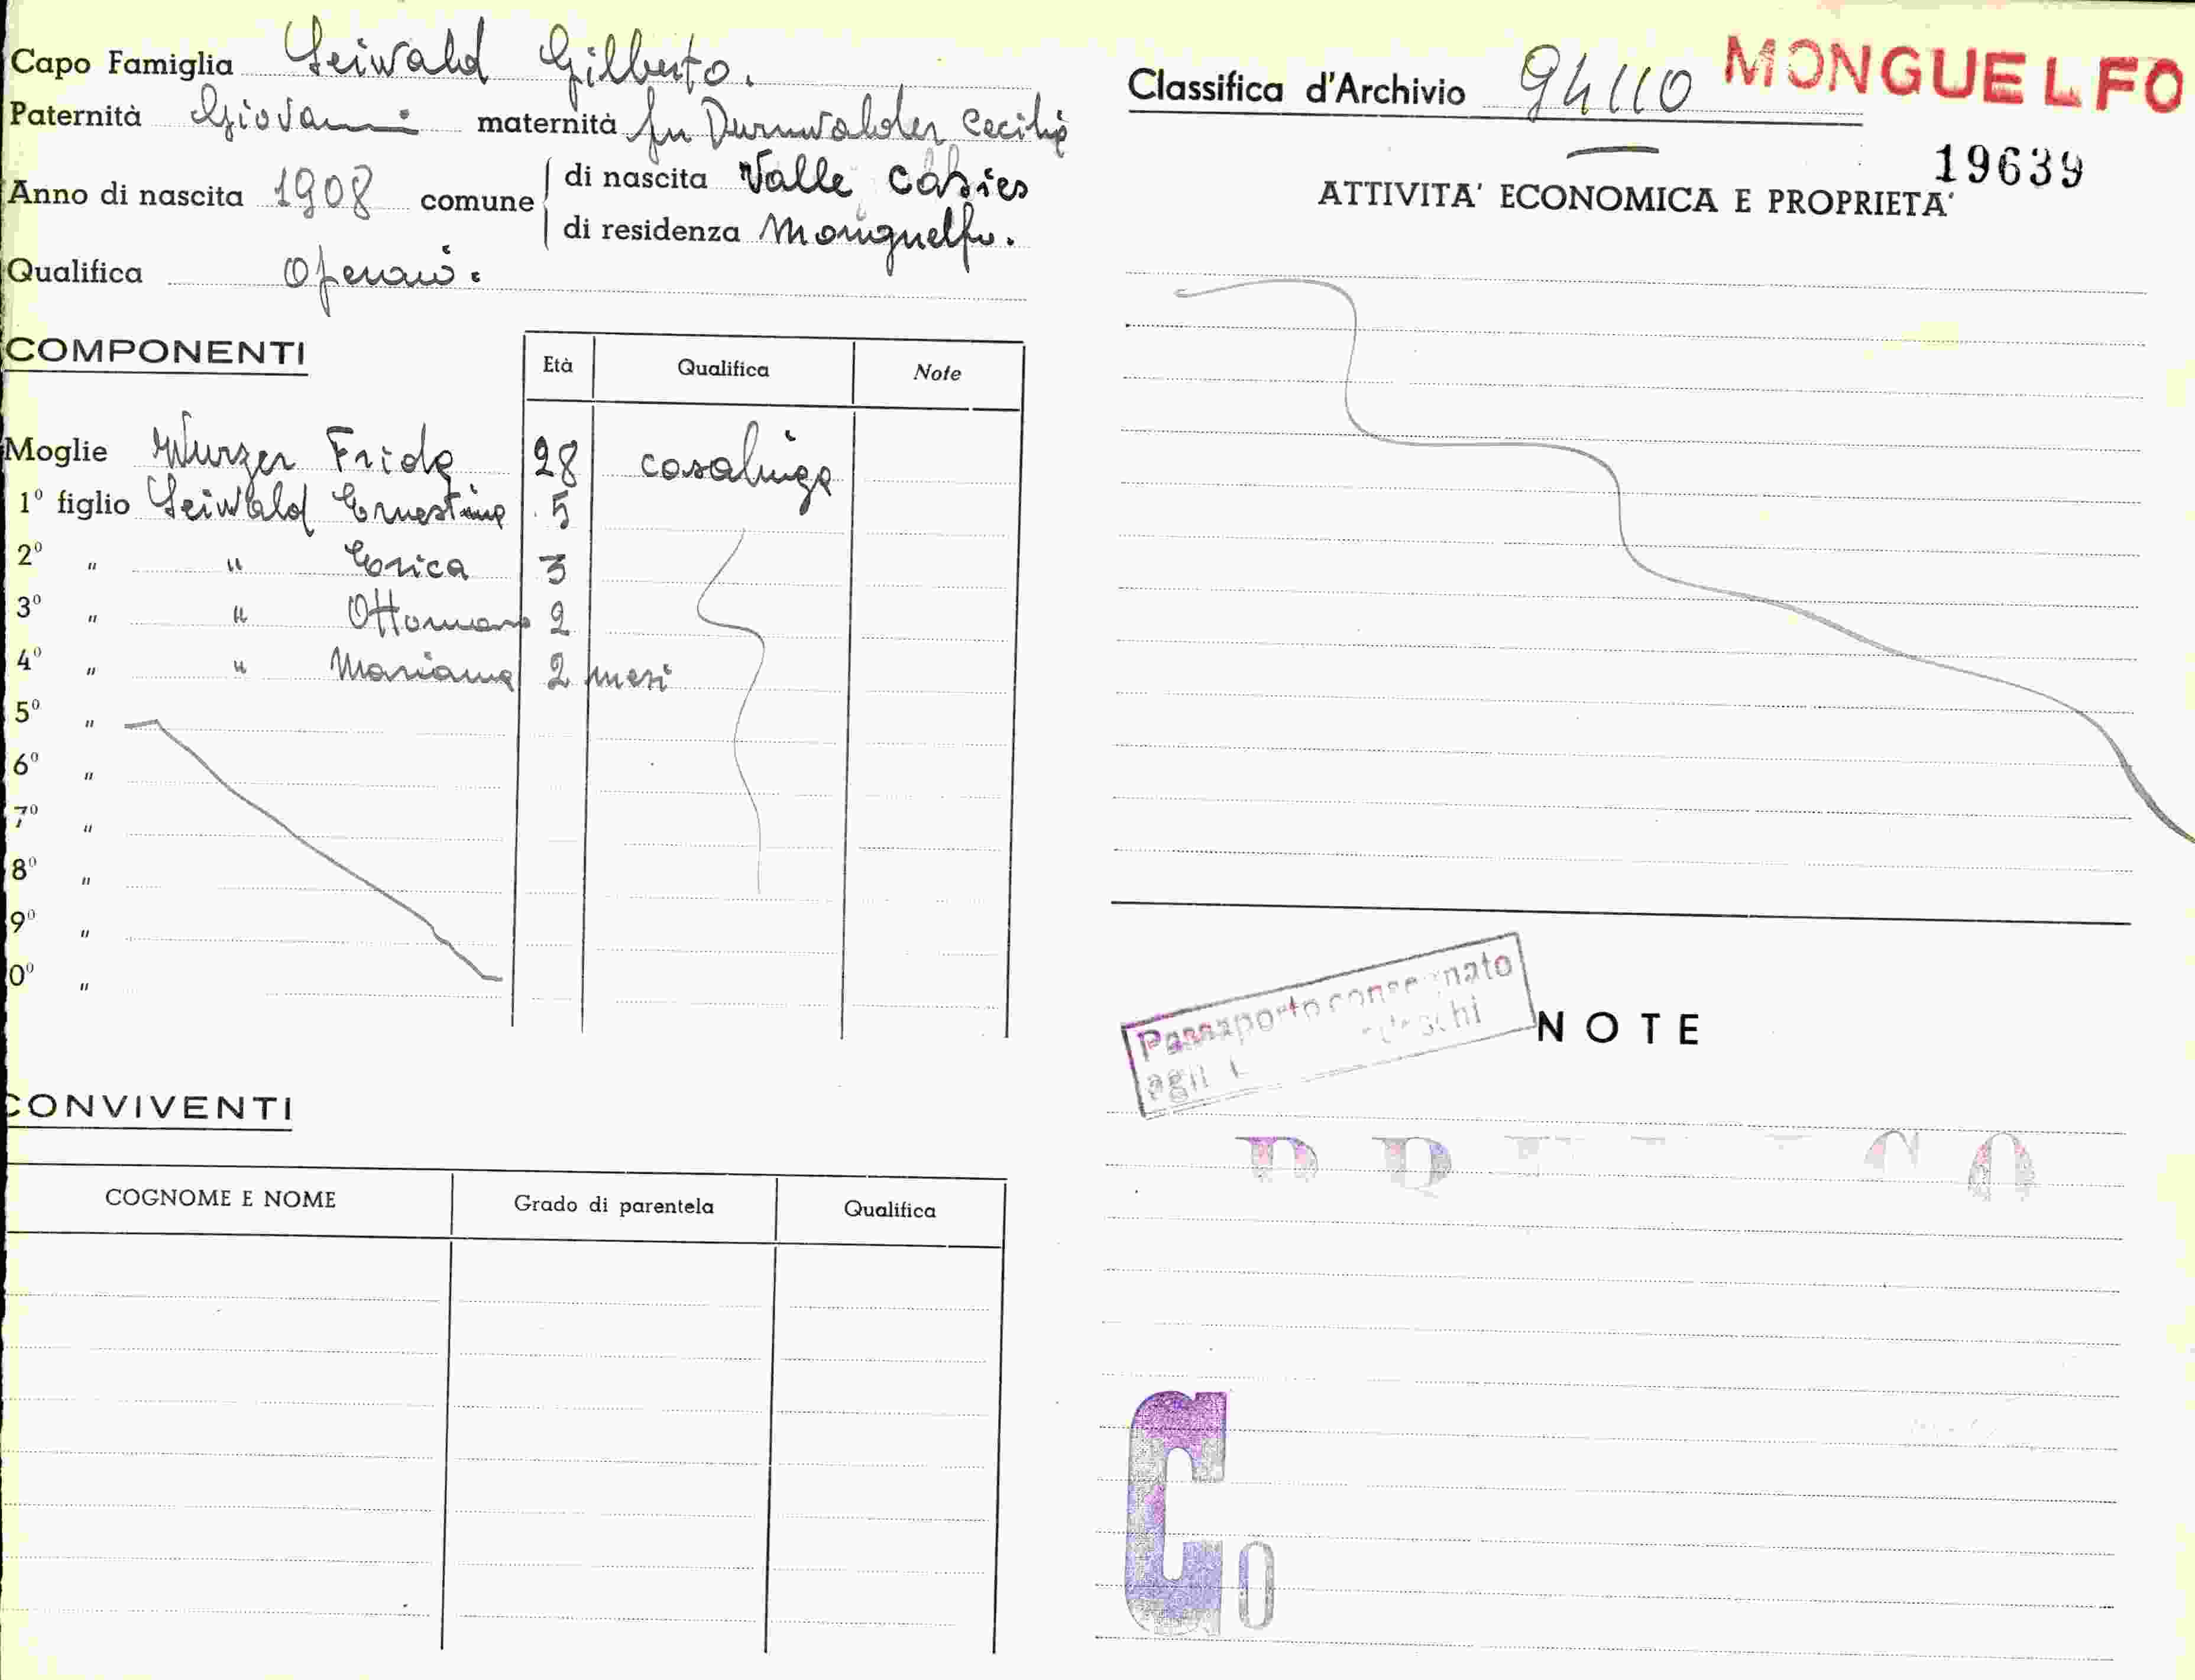 Capo Famiglia Seiwald Gilberto.
Paternità Giovanni maternità fu Durnwalder Cecilia
Anno di nascita 1908 comune di nascita Valle Casies
di residenza Monguelfo.
Qualifica Operaio.
COMPONENTI
Età Qualifica Note
Moglie Wurzer Frida 28 casalinga
1° figlio Seiwald Ernestina 5
2° " " Erica 3
3° " " Ottomano 2
4° " " Marianna 2 mesi
5° "
6° "
7° "
8° "
9° "
0° "
CONVIVENTI
COGNOME E NOME Grado di parentela Qualifica
Classifica d'Archivio 94110 MONGUELFO
19639
ATTIVITA' ECONOMICA E PROPRIETA'
Passaporto consegnato
agli
NOTE
C
0